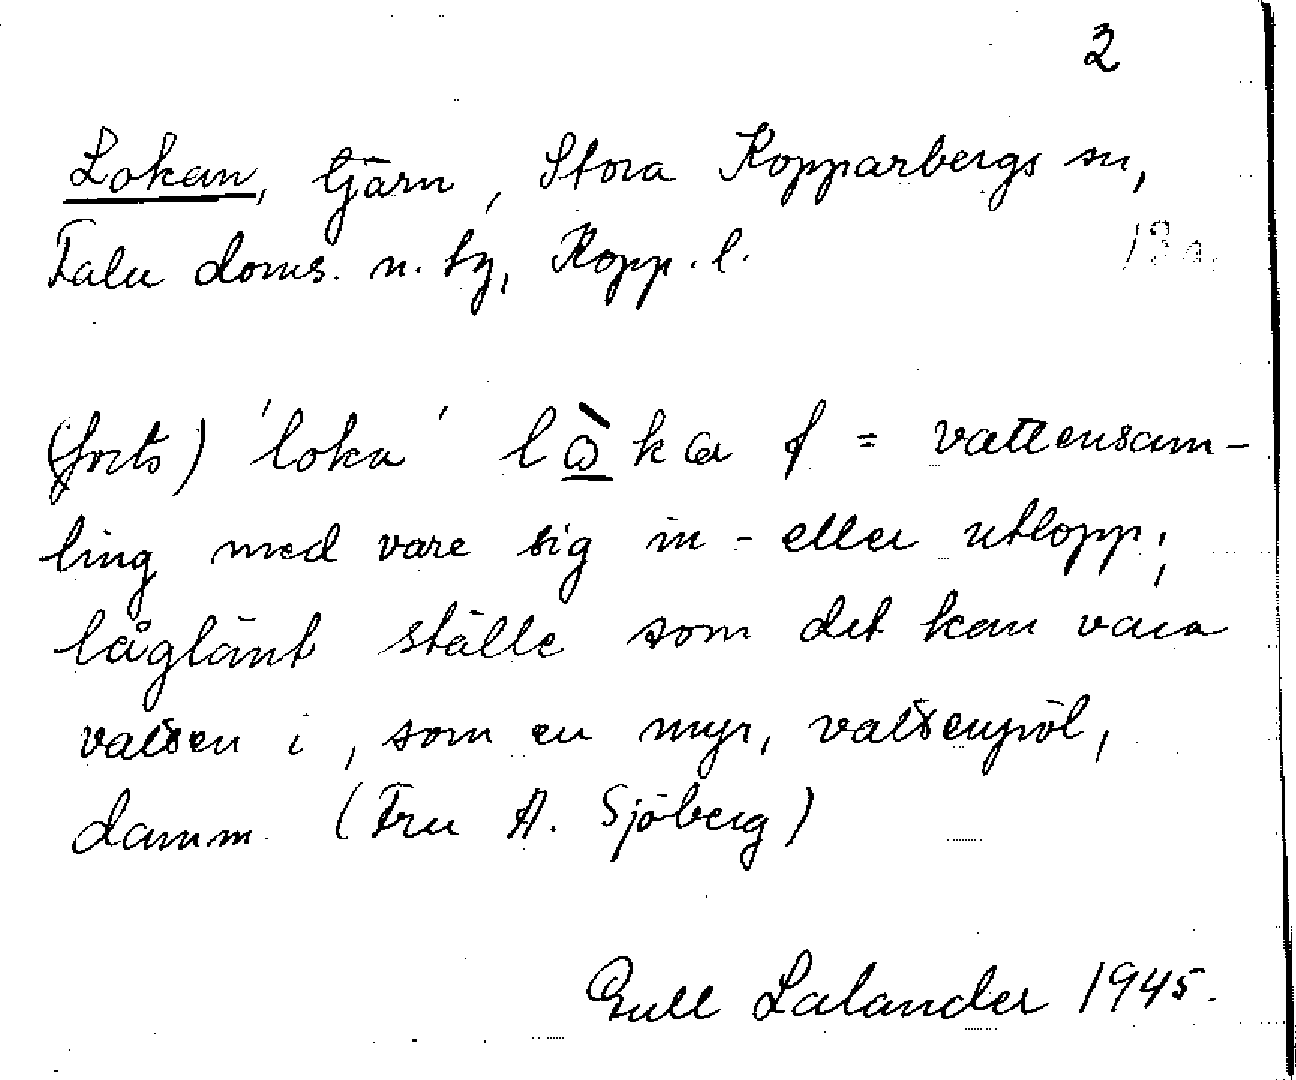 2
Lokan, tjärn, Stora Kopparbergs sn,
Falu doms. n. tg, Kopp. l.
(forts) 'loka' lò̲ka f = vattensam-
ling med vare sig in- eller utlopp;
låglänt ställe som det kan vara
vatten i, som en myr, vattenpöl,
damm. (Fru A. Sjöberg)
Gull Lalander 1945.